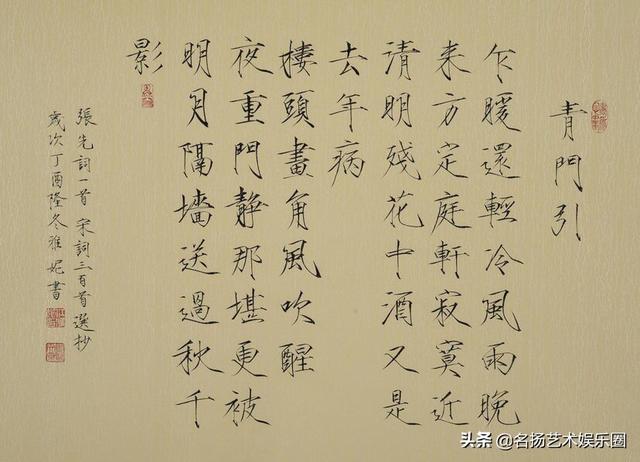 青門引
乍暖還輕冷風雨晚
来方定庭軒寂寞近
清明殘花中酒又是
去年病
樓頭畫角風吹醒
夜重門静那堪更被
明月隔墻送過秋千
影
張先詞一首 宋詞三百首選抄
歲次丁酉隆冬雅妮書
头条 @名扬艺术娱乐圈